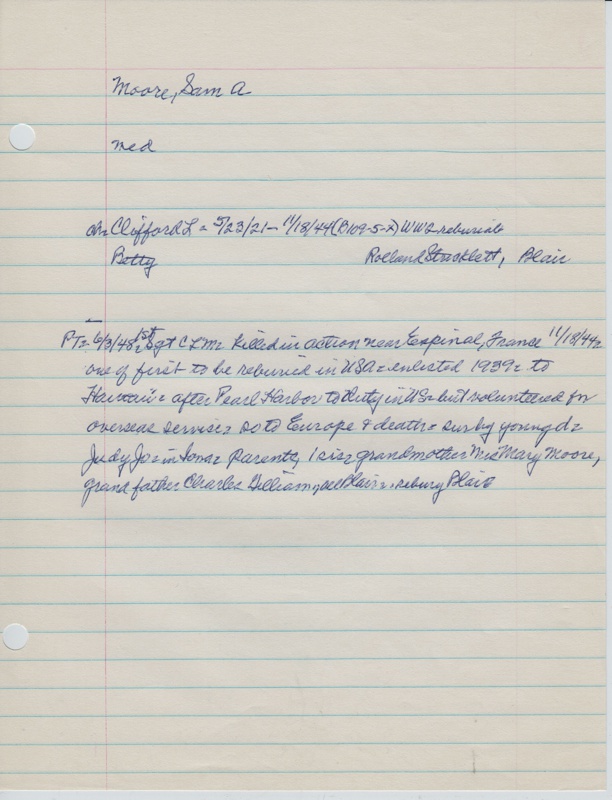 Moore, Sam A
med
ch= Clifford L = 5/23/21 - 11/18/44 (B109-5-2) WW2 reburial
Betty Rolland Stricklett, Blair
PT= 6/3/48 1st Sgt C L M= killed in action near Espinal, France 11/18/44=
one of first to be reburied in USA= enlisted 1939= to
Hawaii= after Pearl Harbor to duty in US= but volunteered for
overseas service= so to Europe & death= sur by young d=
Judy Jo= in Iowa= parents, 1 sis= grandmother Mrs Mary Moore,
grandfather Charles Gilliam, all Blair= rebury Blair